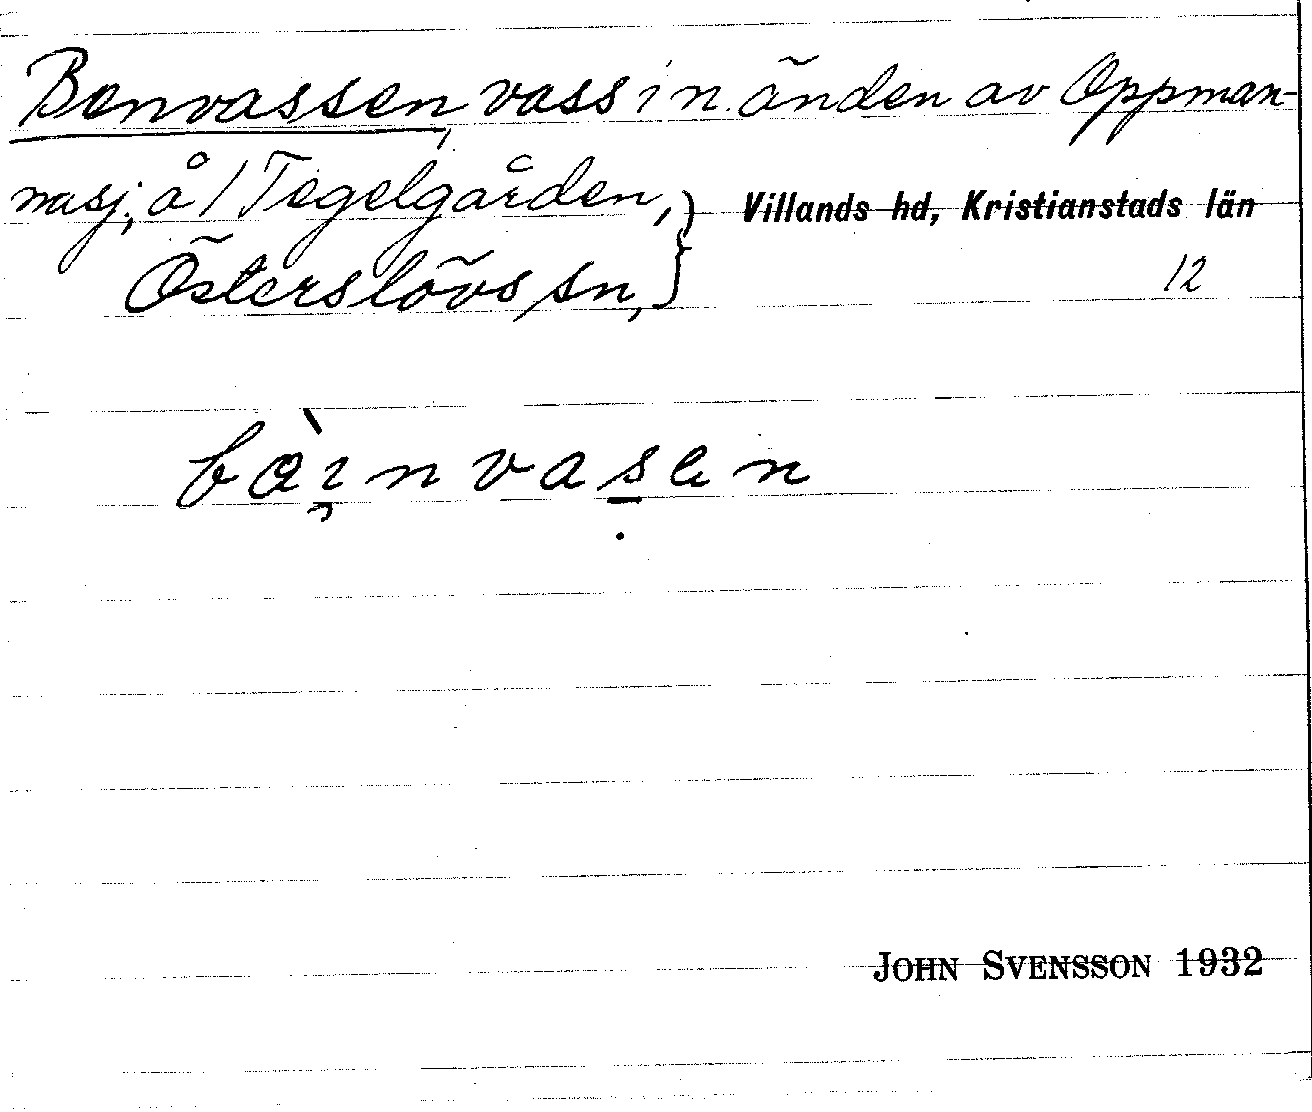 Benvassen, vass i n. änden av Oppman-
nasj; å / Tegelgården, } Villands hd, Kristianstads län
Österslövs sn, 12
JOHN SVENSSON 1932